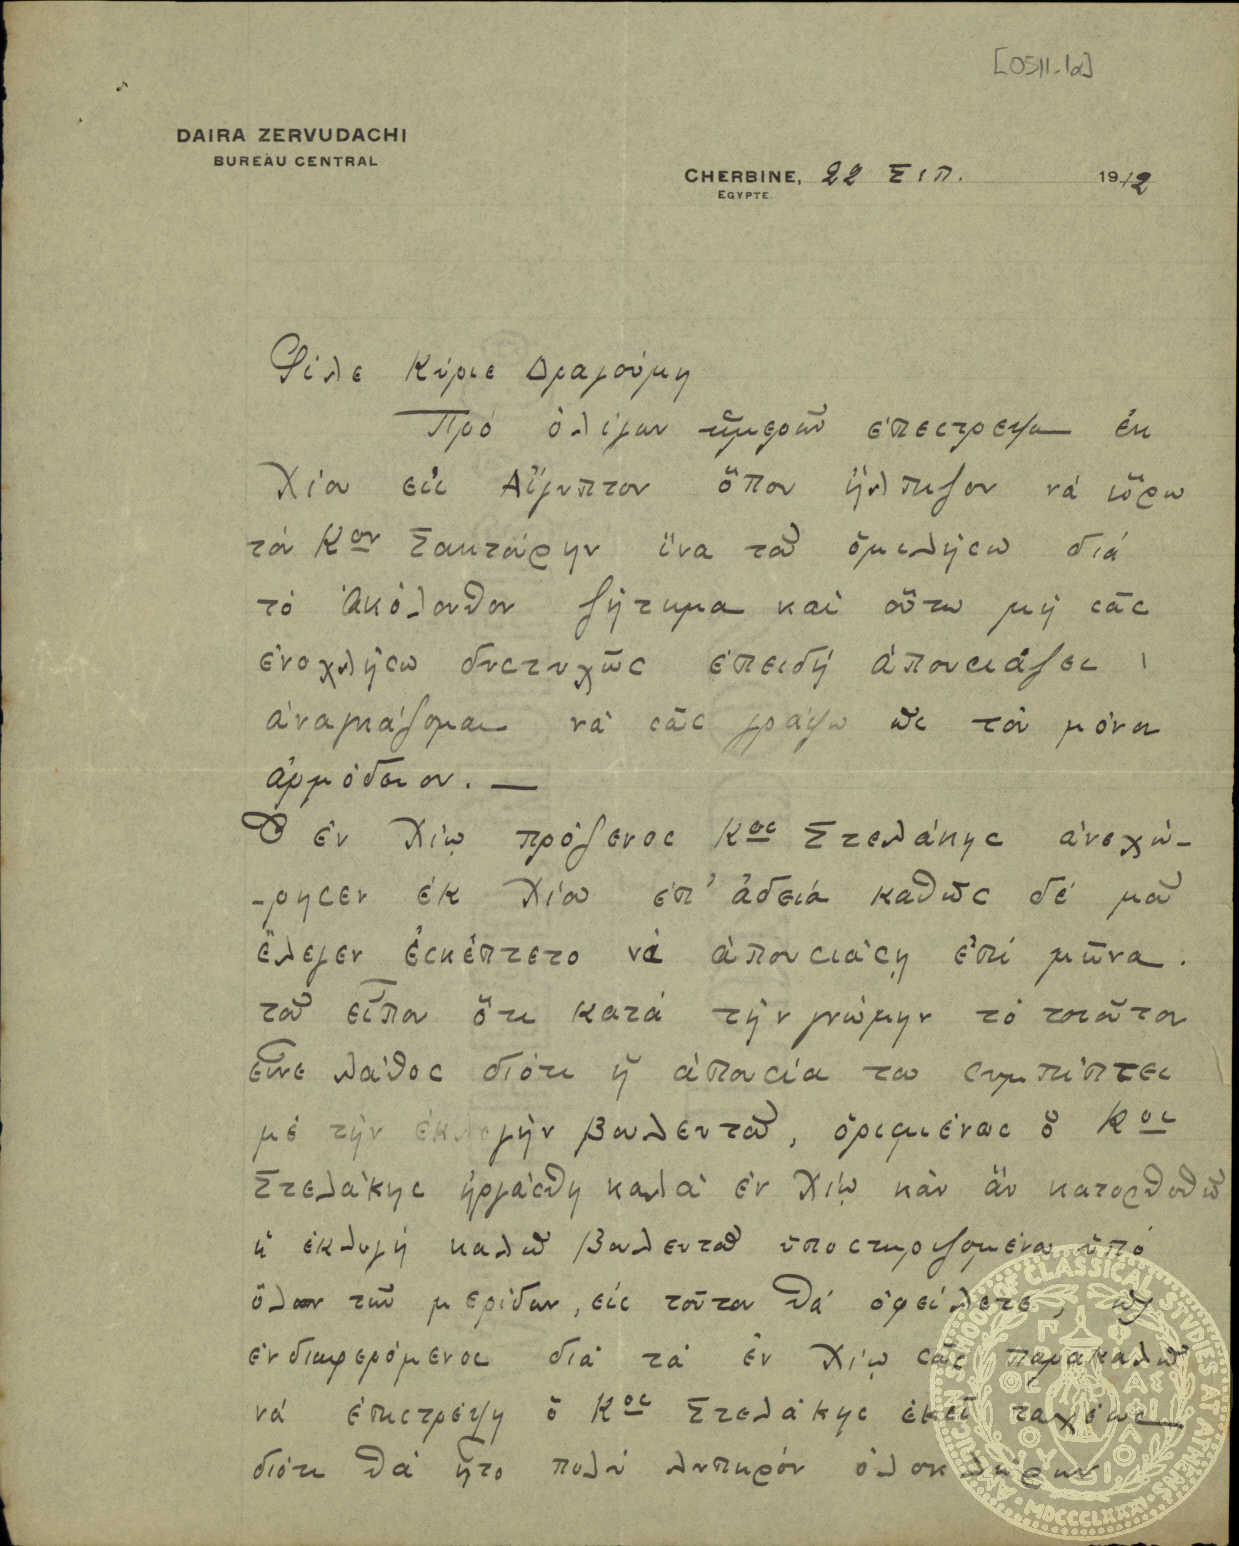 [0511-1α]
DAIRA ZERVUDACHI
BUREAU CENTRAL
CHERBINE, 22 Σεπ. 1912
EGYPTE.
Φίλε Κύριε Δραγούμη
Πρό ὀλίγων ἡμερῶν ἐπέστρεψα ἐκ
Χίου εἰς Αἴγυπτον ὅπου ἤλπιζον νά εὕρω
τόν Κον Σακτούρην ἵνα τοῦ ὁμιλήσω διά
τό ἀκόλουθον ζήτημα καί οὕτω μή σᾶς
ἐνοχλήσω δυστυχῶς ἐπειδή ἀπουσιάζει
ἀναγκάζομαι νά σᾶς γράψω ὡς τόν μόνον
ἁρμόδιον. —
Ὁ ἐν Χίῳ πρόξενος Κος Στελάκης ἀνεχώ-
-ρησεν ἐκ Χίου ἐπ' ἀδείᾳ καθώς δέ μοῦ
ἔλεγεν ἐσκέπτετο νά ἀπουσιάσῃ ἐπί μῆνα.
τοῦ εἶπον ὅτι κατά τήν γνώμην τό τοιοῦτον
εἶνε λάθος διότι ἡ ἀπουσία του συμπίπτει
μέ τήν ἐκλογήν βουλευτοῦ, ὁρισμένως ὁ Κος
Στελάκης ἠργάσθη καλά ἐν Χίῳ κάν ἄν κατορθωθῇ
ἡ ἐκλογή καλοῦ βουλευτοῦ ὑποστηριζομένου ὑπό
ὅλων τῶν μερίδων, εἰς τοῦτον θά ὀφείλετε, ὡς
ἐνδιαφερόμενος διά τά ἐν Χίῳ σᾶς παρακαλῶ
νά ἐπιστρέψῃ ὁ Κος Στελάκης ἐκεῖ ταχέως
διότι θά ἦτο πολύ λυπηρόν ὁλοκλήρων
AMERICAN SCHOOL OF CLASSICAL STUDIES AT ATHENS
MDCCCLXXXI